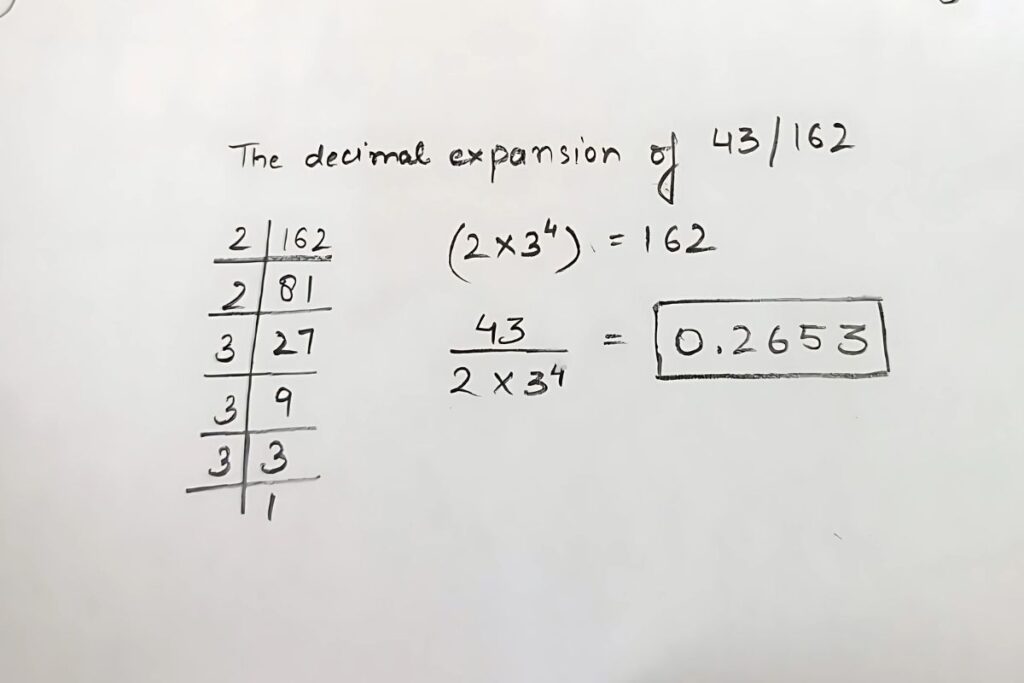 The decimal expansion of 43/162
2 | 162
2 | 81
3 | 27
3 | 9
3 | 3
1
(2×3⁴) = 162
43 / 2 × 3⁴ = 0.2653